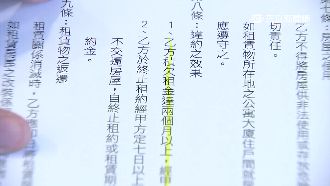 乙方不得將房屋供非法使用或存放危
切責任。
如租賃物所在地之公寓大廈住戶間就
應遵守之。
八條:違約之效果
1.乙方積欠租金達兩個月以上,經甲
2.乙方於終止租約經甲方定七日以上
不交還房屋,自終止租約或租賃期
約金。
九條:租賃物之返還
租賃關係消滅時,乙方應即日
如租賃物之